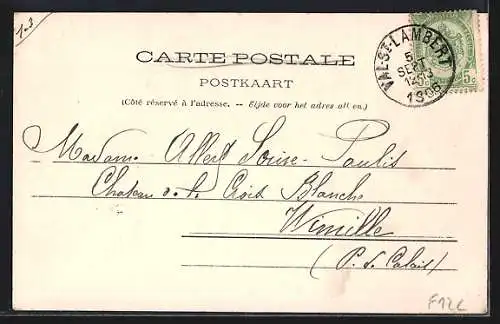 1-3
CARTE POSTALE
POSTKAART
(Côté réservé à l'adresse. — Zijde voor het adres alleen.)
VAL-ST-LAMBERT
5
SEPT
1906
5c
Madame Albert
Château de la Croix Blanche
Wimille
(P. d. Calais)
F12E